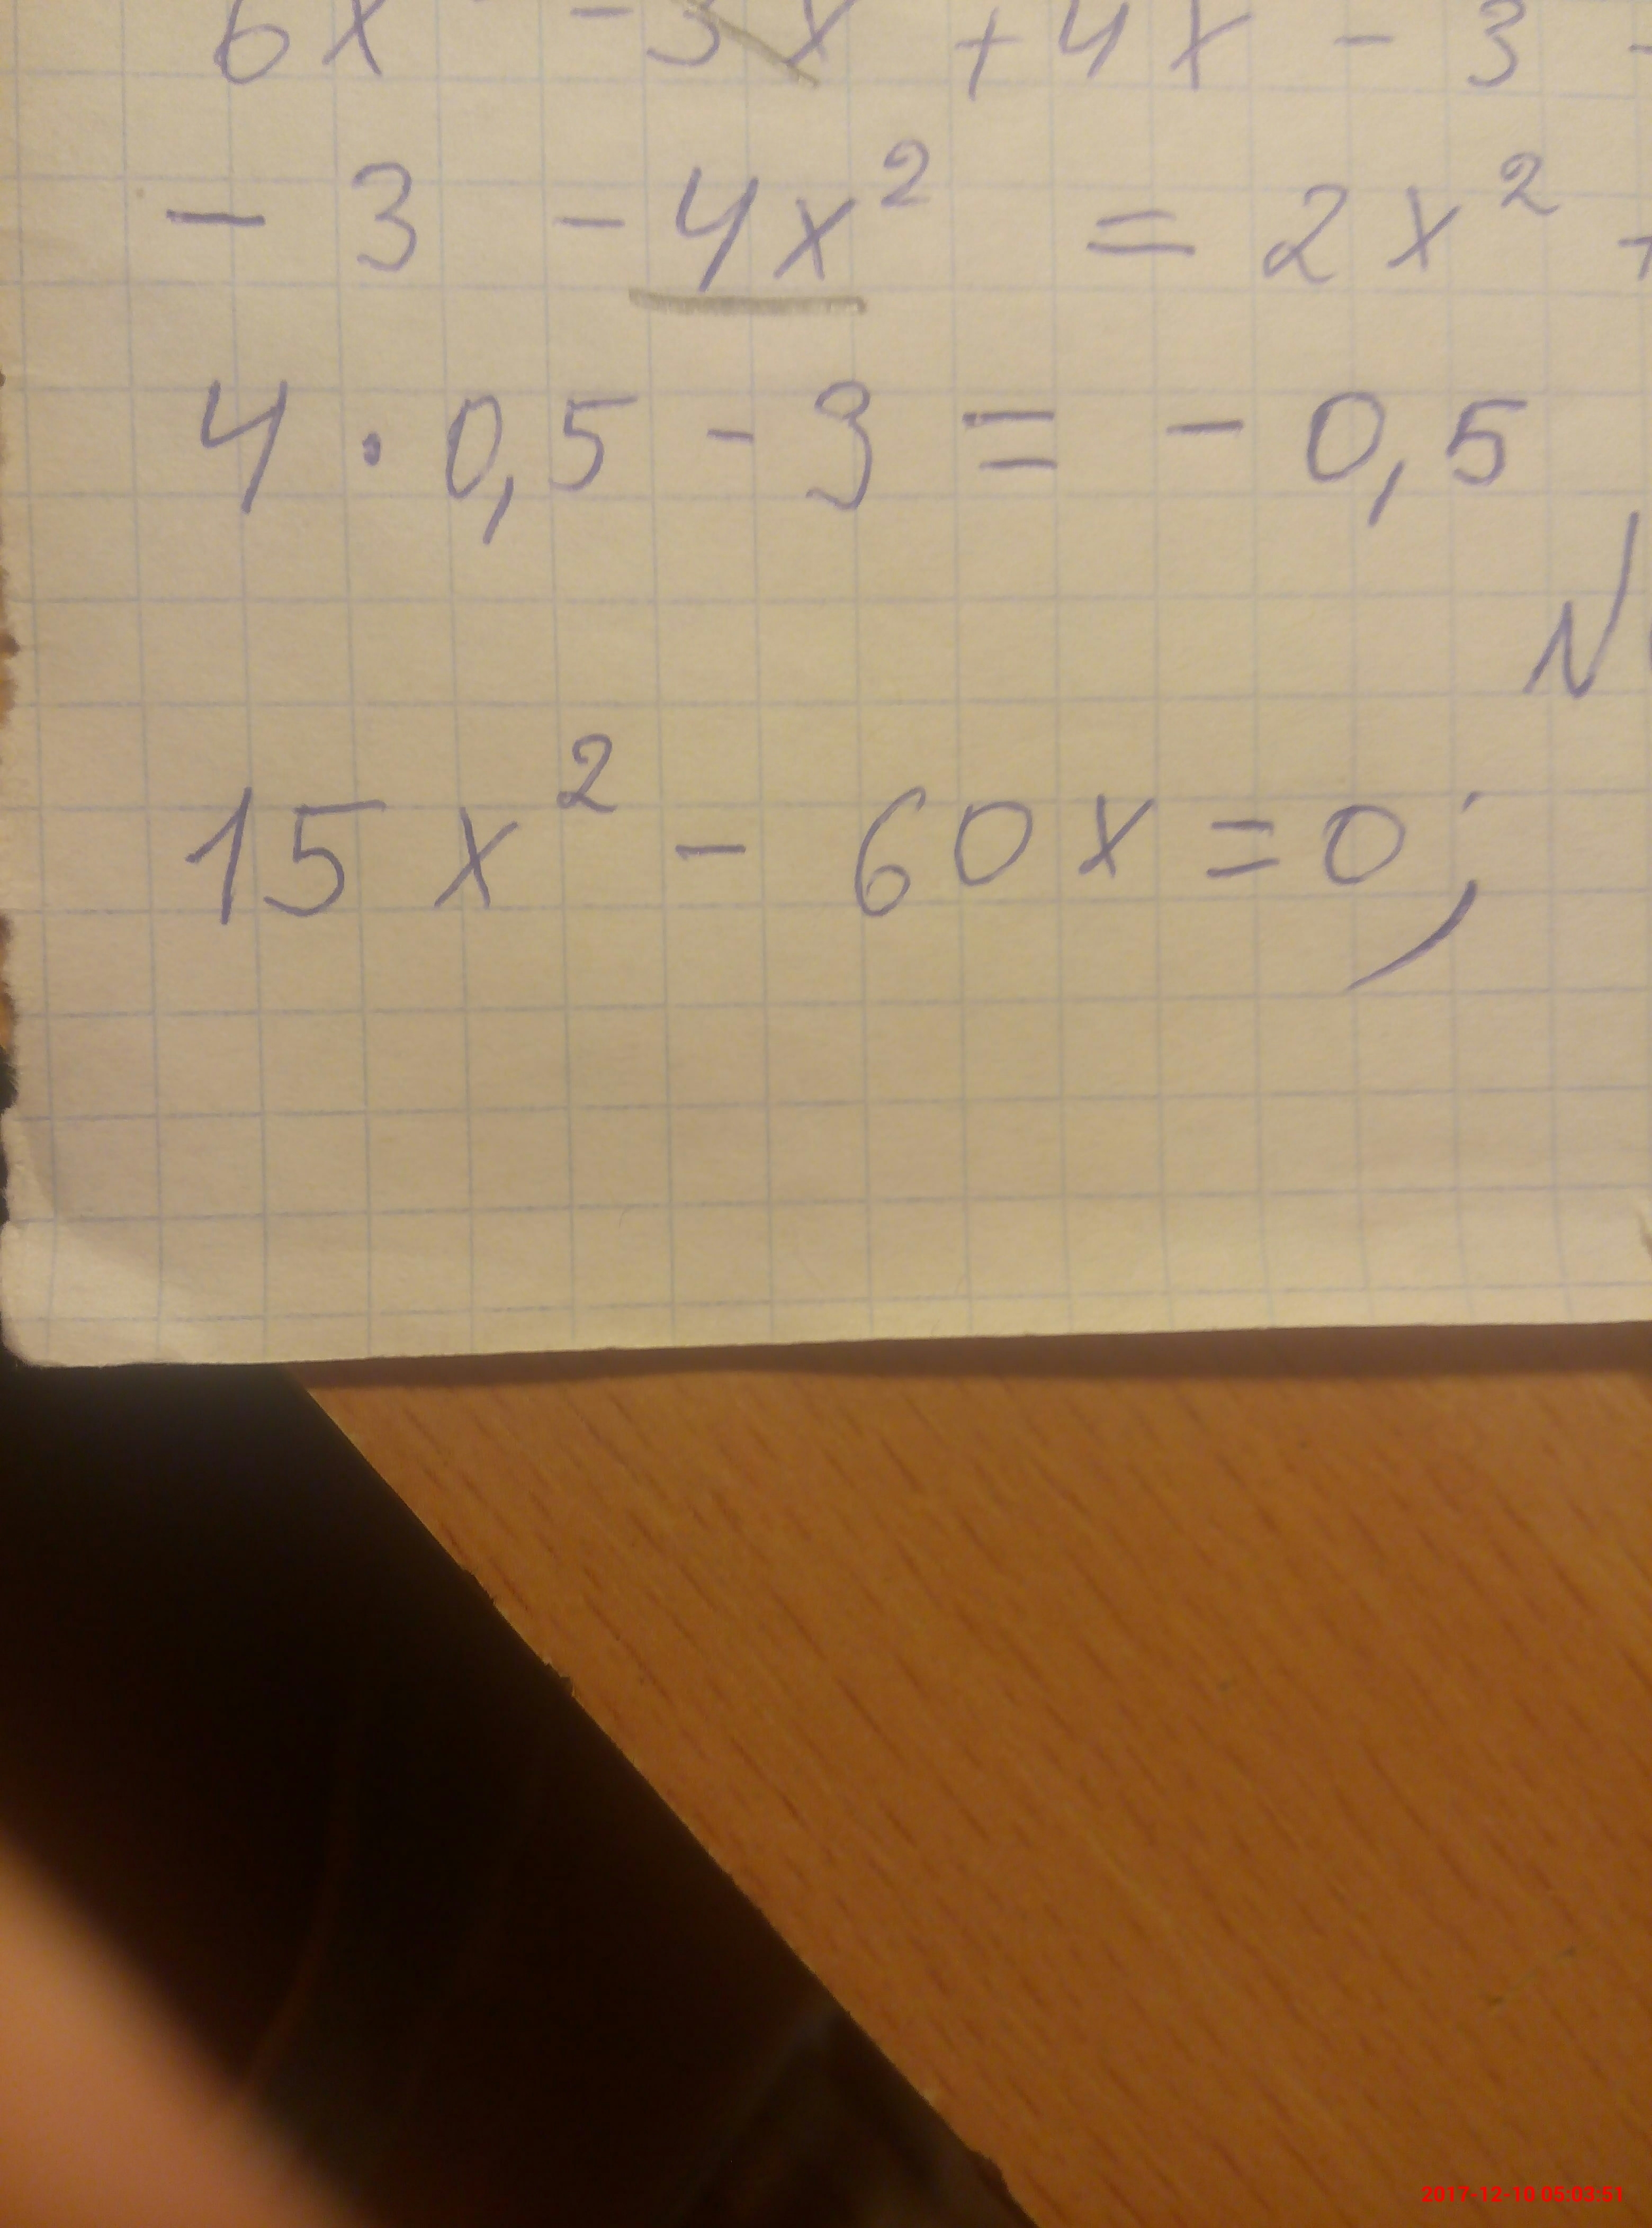 6x - 3x + 4x - 3 -
- 3 - 4x² = 2x² +
4 · 0,5 - 3 = - 0,5
N
15x² - 60x = 0;
2017-12-10 05:03:51